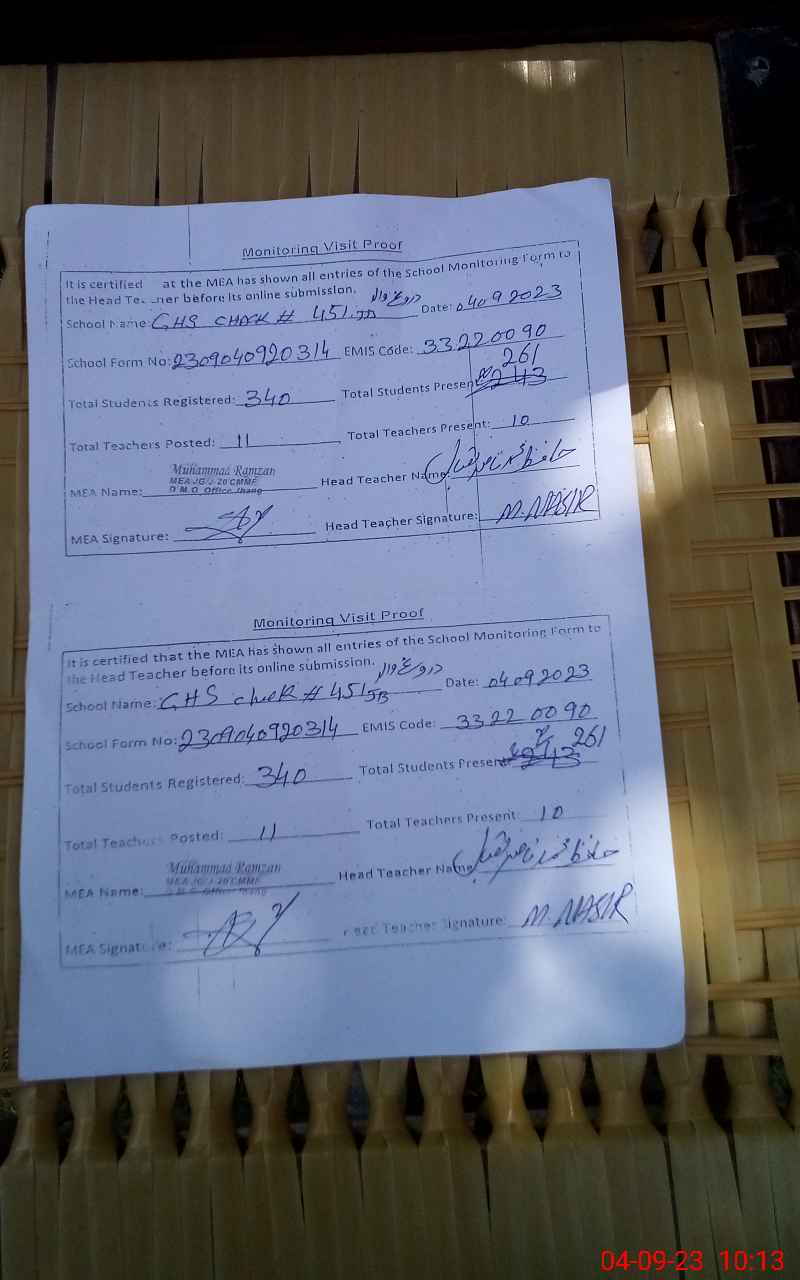 Monitoring Visit Proof
It is certified at the MEA has shown all entries of the School Monitoring Form to
the Head Teacher before its online submission.
School Name: GHS CHAK # 451 JB Date: 04092023
School Form No: 2309040920314 EMIS Code: 33220090
261
Total Students Registered: 340 Total Students Present: 243
Total Teachers Posted: 11 Total Teachers Present: 10
Muhammad Ramzan
MEA-JG/J-20 CMMF
D.M.O. Office Jhang
MEA Name: Head Teacher Name
MEA Signature: Head Teacher Signature: M. NASIR
Monitoring Visit Proof
It is certified that the MEA has shown all entries of the School Monitoring Form to
the Head Teacher before its online submission.
School Name: GHS chak # 451 JB Date: 04092023
School Form No: 2309040920314 EMIS Code: 33220090
261
Total Students Registered: 340 Total Students Present: 243
Total Teachers Posted: 11 Total Teachers Present: 10
Muhammad Ramzan
MEA-JG/J-20 CMMF
D.M.O. Office Jhang
MEA Name: Head Teacher Name
MEA Signature: Head Teacher Signature: M. NASIR
04-09-23 10:13